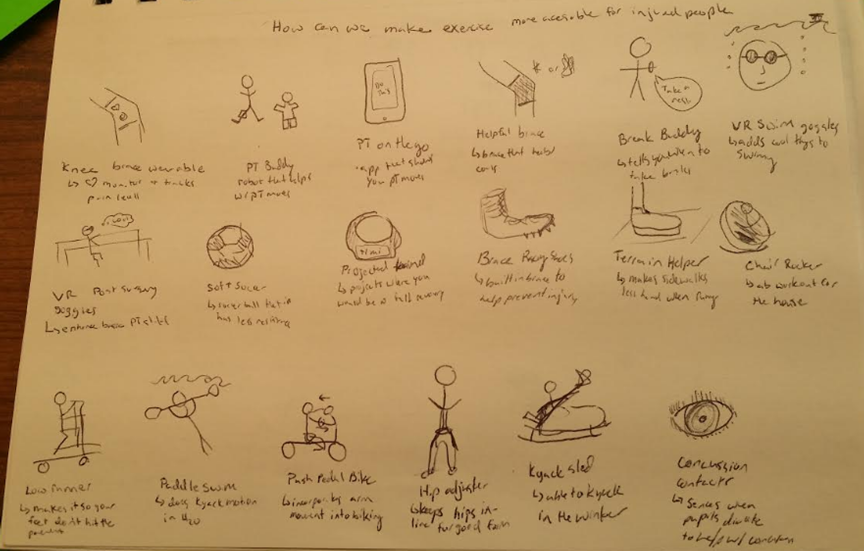 How can we make exercise more acessible for injured people
Knee brace wearable
↳ ♡ monitor + tracks
pain levels
PT Buddy
robot that helps
w/ PT moves
PT on the go
app that shows
you PT moves
Helpful brace
↳ brace that
or
Take a
rest
Break Buddy
↳ tells you when to
take breaks
VR Swim goggles
↳ adds cool things to
swimming
VR Post surgery
goggles
Soft Soccer
↳ soccer ball that
has less
Projected
↳ projects where you
would be
Brace Rugby Shoes
↳ built in brace to
help prevent injury
Terrain Helper
↳ makes sidewalks
less hard when
Chair Rocker
↳ ab workout for
the house
makes it so your
feet don't hit the
Paddle Swim
↳ does kyack motion
in H2O
Push Pedal Bike
↳ incorporates arm
movement into biking
Hip adjuster
↳ keeps hips in-
line for good form
Kyack sled
↳ able to kyack
in the winter
Concussion
contacts
↳ senses when
pupils dialate
to help w/ concussion